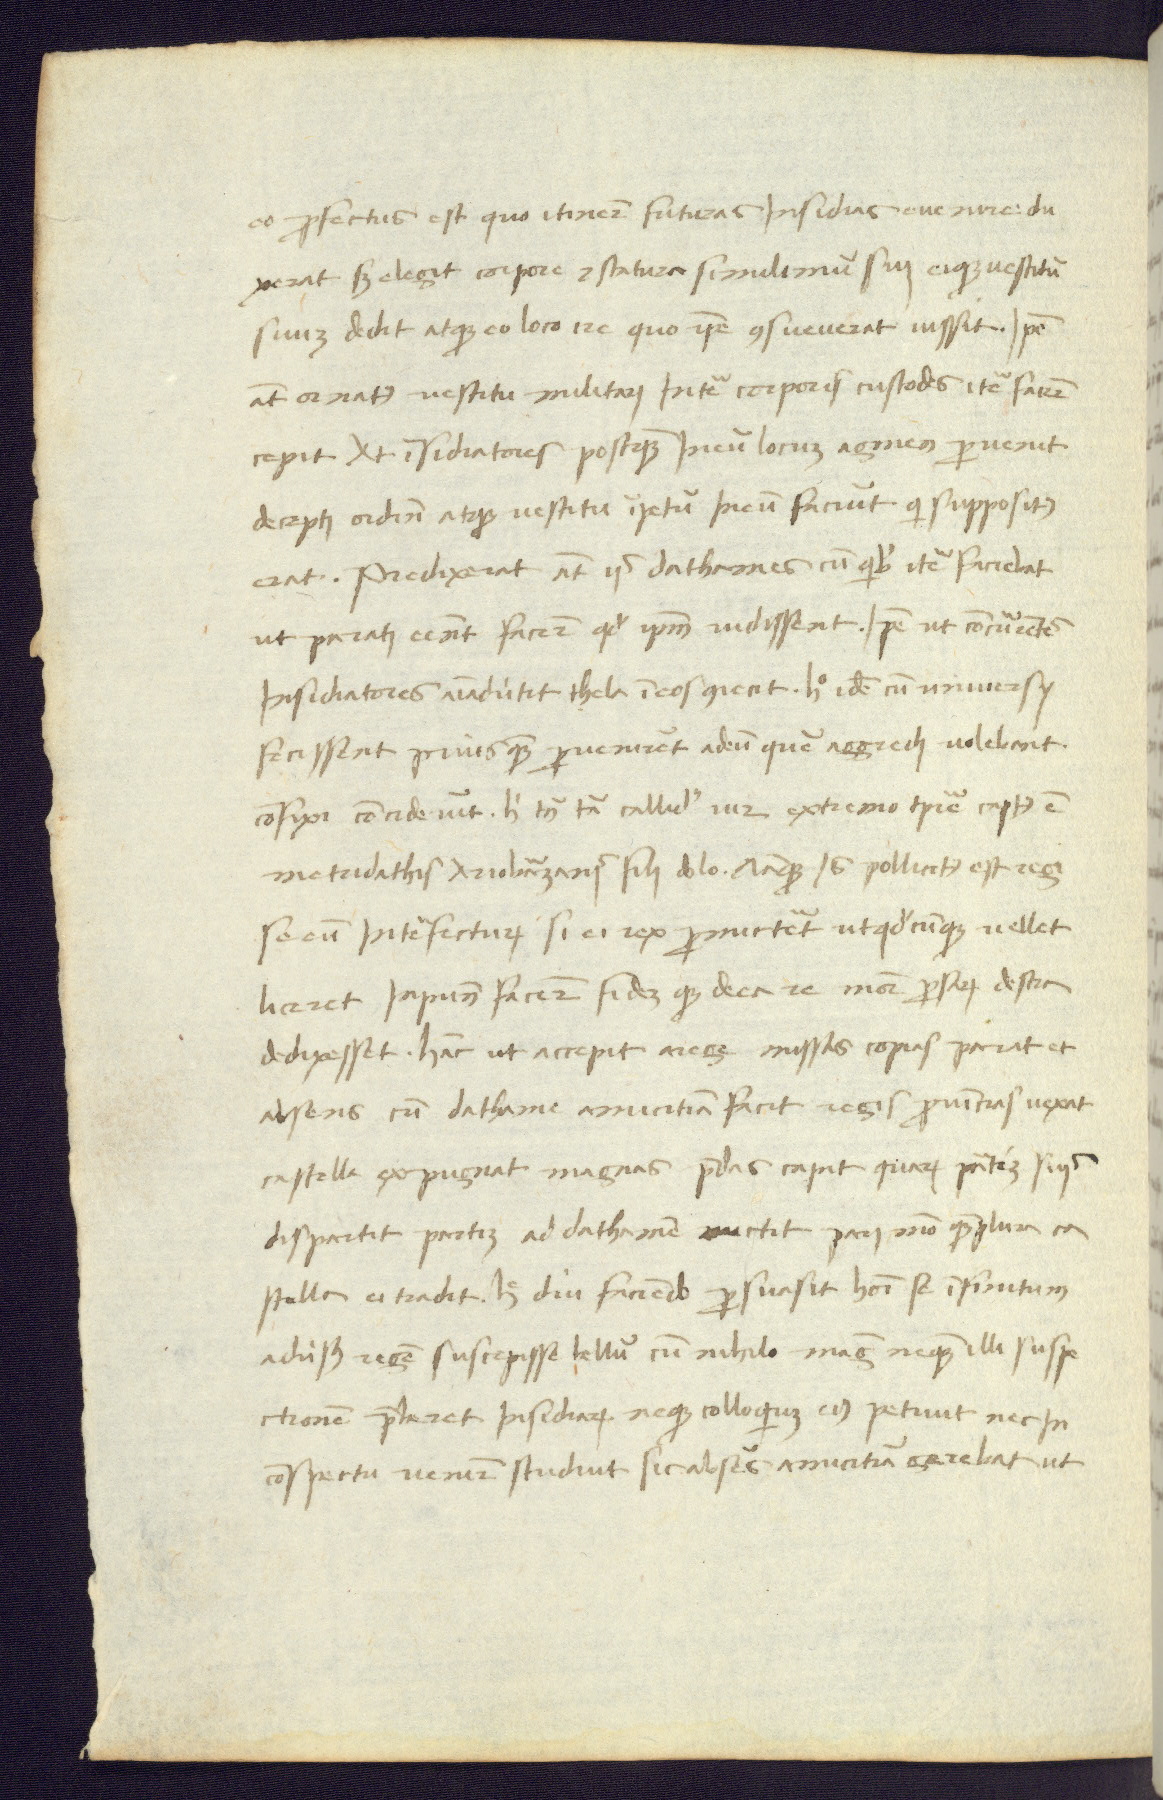 eo ꝓfectus est quo itinerē futuras Insidias euenire du
xerat sꝫ elegit corpore ⁊ statura similimū sui eiqꝫ vestitū
suuꝫ dedit atqꝫ eo loco ire quo ip̄e ꝯsueuerat iussit. Ip̄e
at̄ ornatꝰ vestitu militari Inter̄ corporis custodes iter̄ facer̄
cepit At īsidiatores postqꝫ̄ Ineū locuꝫ agmen ꝑuenit
decepti ordin̄ atqꝫ vestitu īpetū Ineū faciūt qi suppositꝰ
erat. Predixerat at̄ ijs dathames cū qibꝰ iter̄ faciebat
ut parati eēnt facer̄ qd̓ ipm̄ uidissent. Ip̄e ut cōcurrētes
Insidiatores aīaduertit thela ī eos ꝯiecit. hͦ idē cū uniuersi
fecissent priusqꝫ̄ ꝑuenirēt adeū quē aggredi uolebant.
cōfixi cōciderūt. h̓ tn̄ tā callidꝰ uir extremo tp̄re captꝰ ē
metridathis Ariobarzanis filij dolo. Nāqꝫ Is pollicitꝰ est regi
se eū Interfecturꝝ si ei rex ꝑmicteret ut qd̓cūqꝫ uellet
liceret Inpun̄ facer̄ fideꝫqꝫ deea re mor̄ ꝑsarꝝ destra
dedixesset. hāc ut accepit arege missas copias parat et
absens cū dathame amicitiā facit regis ꝓuīcias uexat
castella expugnat magnas p̄das capit quarꝝ parteꝫ suis
dispartit parteꝫ ad dathamē mictit pari mō qꝫ̄plura ca
stella ei tradit. hͨ diu faciēdo ꝑsuasit hoī se īfinitum
aduersꝫ regē suscepisse bellū cū nihilo maḡ neqꝫ̄ illi suspe
ctionē p̄beret Insidiarꝝ neqꝫ colloqiuꝫ eiꝰ petiuit nec In
cōspectu uenir̄ studuit sic absēs amicitiā gerebat ut